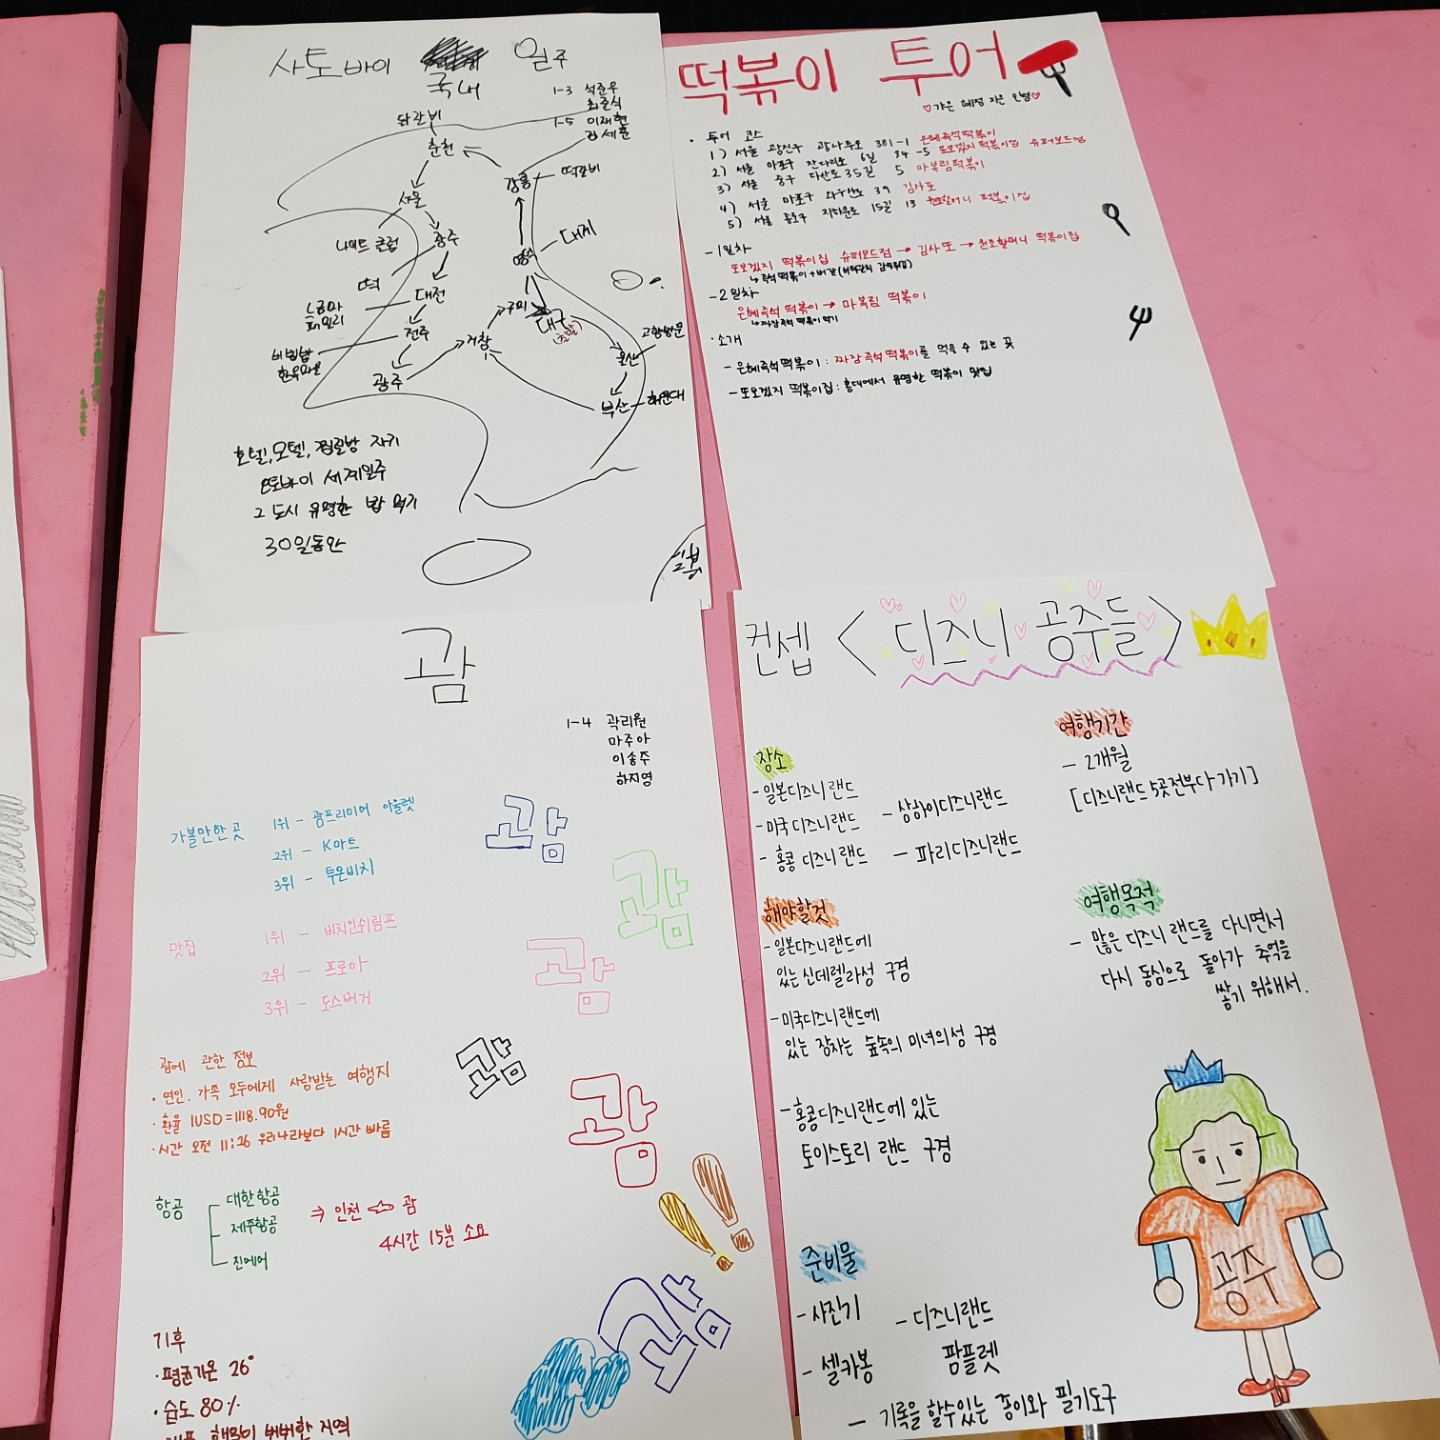 사토바이 국내 일주
1-3 석준우
최준식
1-5 이재현
김세훈
닭갈비
춘천
강릉
떡갈비
서울
나이트 클럽
광주
떡
대전
전주
비빔밥
한옥마을
광주
거창
구미
대구
울산
고함항문
부산
해운대
호텔, 모텔, 찜질방 자기
오토바이 세계일주
그 도시 유명한 밥 먹기
30일동안
떡볶이 투어
투어 코스
1) 서울 광진구 광나루로 381-1 은혜즉석떡볶이
2) 서울 마포구 잔다리로 6길 34-5 또보겠지 떡볶이집 슈퍼보드점
3) 서울 중구 다산로35길 5 마복림떡볶이
4) 서울 마포구 와우산로 39 김사또
5) 서울 종로구 자하문로 15길 13 원조할머니 떡볶이집
-1일차
또보겠지 떡볶이집 슈퍼보드점 → 김사또 → 원조할머니 떡볶이집
-2일차
은혜즉석 떡볶이 → 마복림 떡볶이
↳짜장즉석 떡볶이 먹기
·소개
- 은혜즉석떡볶이 : 짜장즉석 떡볶이를 먹을 수 있는 곳
- 또보겠지 떡볶이집 : 홍대에서 유명한 떡볶이 맛집
괌
1-4 곽리원
마주아
이송주
하지영
가볼만한 곳
1위 - 괌프리미어 아울렛
2위 - K마트
3위 - 투몬비치
맛집
1위 - 비치인쉬림프
2위 - 프로아
3위 - 도스버거
괌에 관한 정보
· 연인. 가족 모두에게 사랑받는 여행지
· 환율 1USD=1118.90원
· 시간 오전 11:26 우리나라보다 1시간 빠름
항공
대한항공
제주항공
진에어
⇒ 인천 ⇔ 괌
4시간 15분 소요
기후
·평균기온 26°
·습도 80%
괌
괌
괌
괌
괌
괌
컨셉 <디즈니 공주들>
장소
-일본디즈니랜드
-미국디즈니랜드
-홍콩 디즈니랜드
-상하이디즈니랜드
-파리디즈니랜드
여행기간
- 2개월
[디즈니랜드 5곳전부다가기]
해야할것
-일본디즈니랜드에
있는 신데렐라성 구경
-미국디즈니랜드에
있는 잠자는 숲속의 미녀의성 구경
-홍콩디즈니랜드에 있는
토이스토리 랜드 구경
여행목적
- 많은 디즈니 랜드를 다니면서
다시 동심으로 돌아가 추억을
쌓기 위해서.
준비물
-사진기
-셀카봉
-디즈니랜드
팜플렛
- 기록을 할수있는 종이와 필기도구
공주